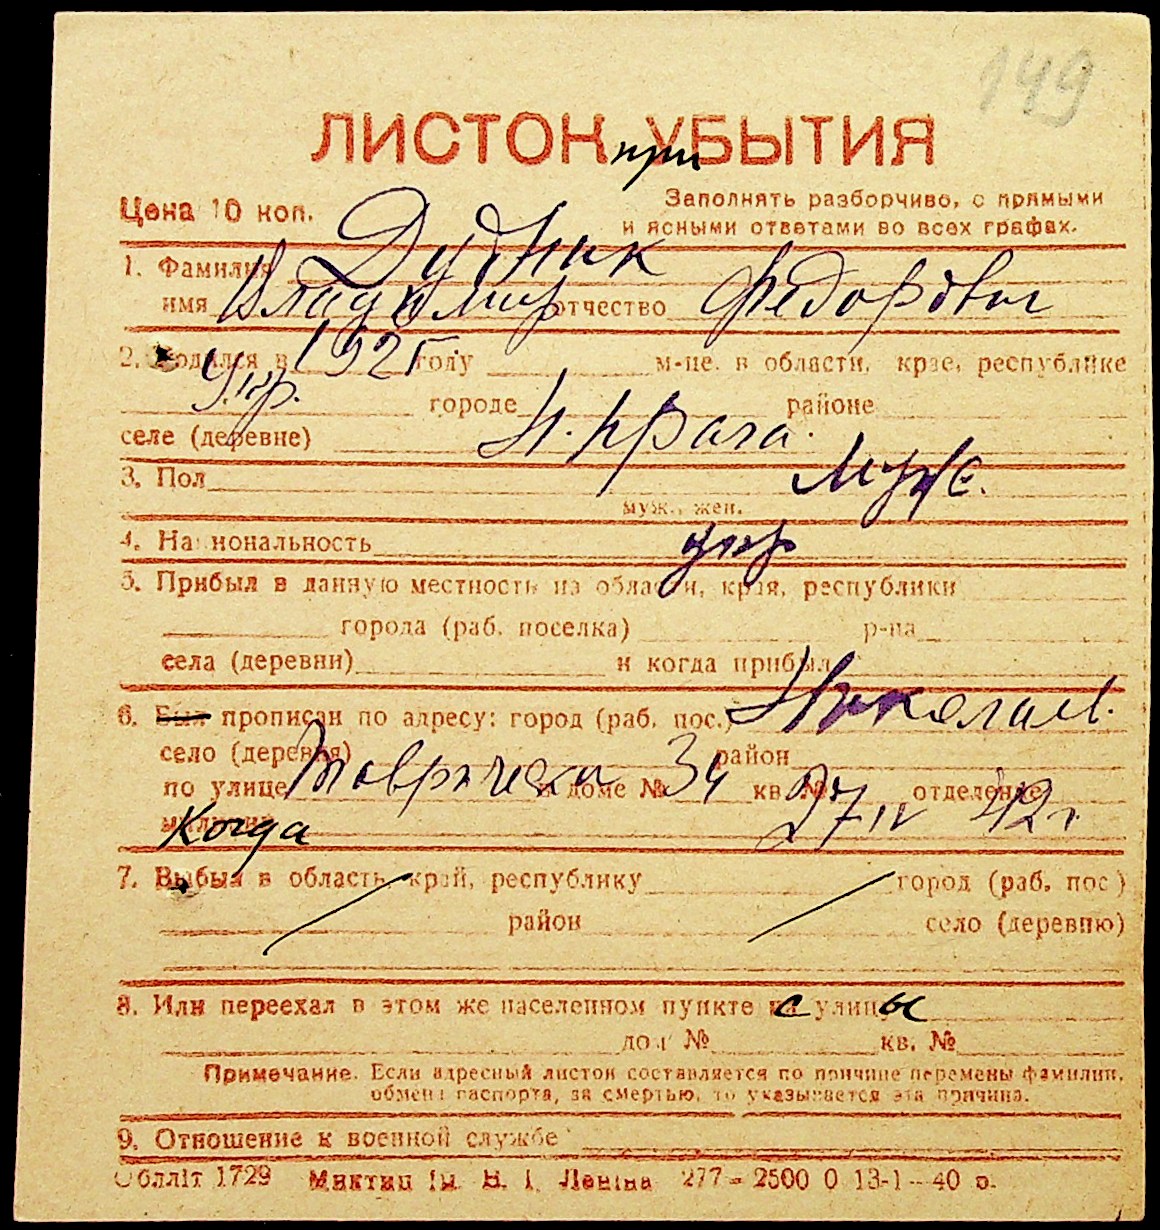 149
ЛИСТОК при УБЫТИЯ
Цена 10 коп.
Заполнять разборчиво, с прямыми
и ясными ответами во всех графах.
1. Фамилия Дудник
имя Владимир отчество Федорович
2. Родился в 1925 году м-це. в области, крае, республике
Укр. городе районе
селе (деревне) Н. Прага.
3. Пол Муж.
муж., жен.
4. Национальность укр
5. Прибыл в данную местность из области, края, республики
города (раб. поселка) р-на
села (деревни) и когда прибыл
6. Был прописан по адресу: город (раб. пос.) Николаев.
село (деревня) район
по улице Таврическа в доме № 34 кв. № отделение
милиции Когда 27 IV 42 г
7. Выбыл в область, край, республику город (раб. пос)
район село (деревню)
8. Или переехал в этом же населенном пункте с улицы
дом № кв. №
Примечание. Если адресный листок составляется по причине перемены фамилии,
обмена паспорта, за смертью, то указывается эта причина.
9. Отношение к военной службе
Облліт 1729 Миктип Ім. В. І. Леніна 277 - 2500 0 13-1-40 р.